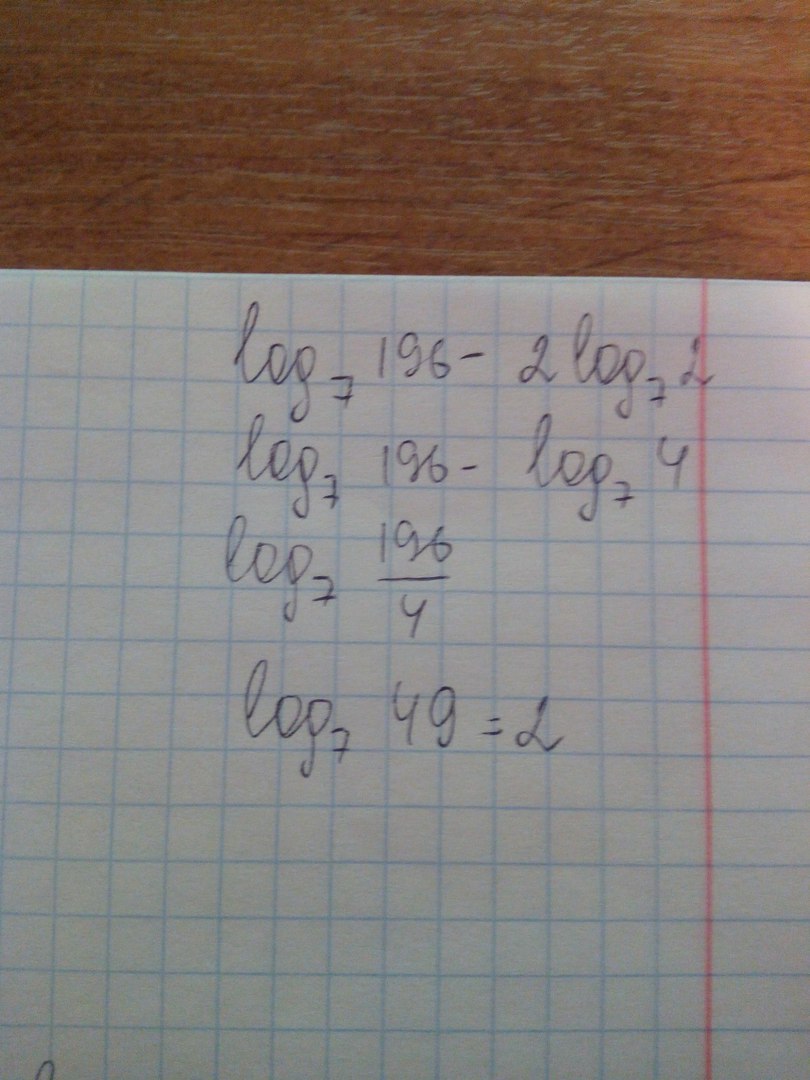 log₇ 196 - 2 log₇ 2
log₇ 196 - log₇ 4
log₇ 196/4
log₇ 49 = 2